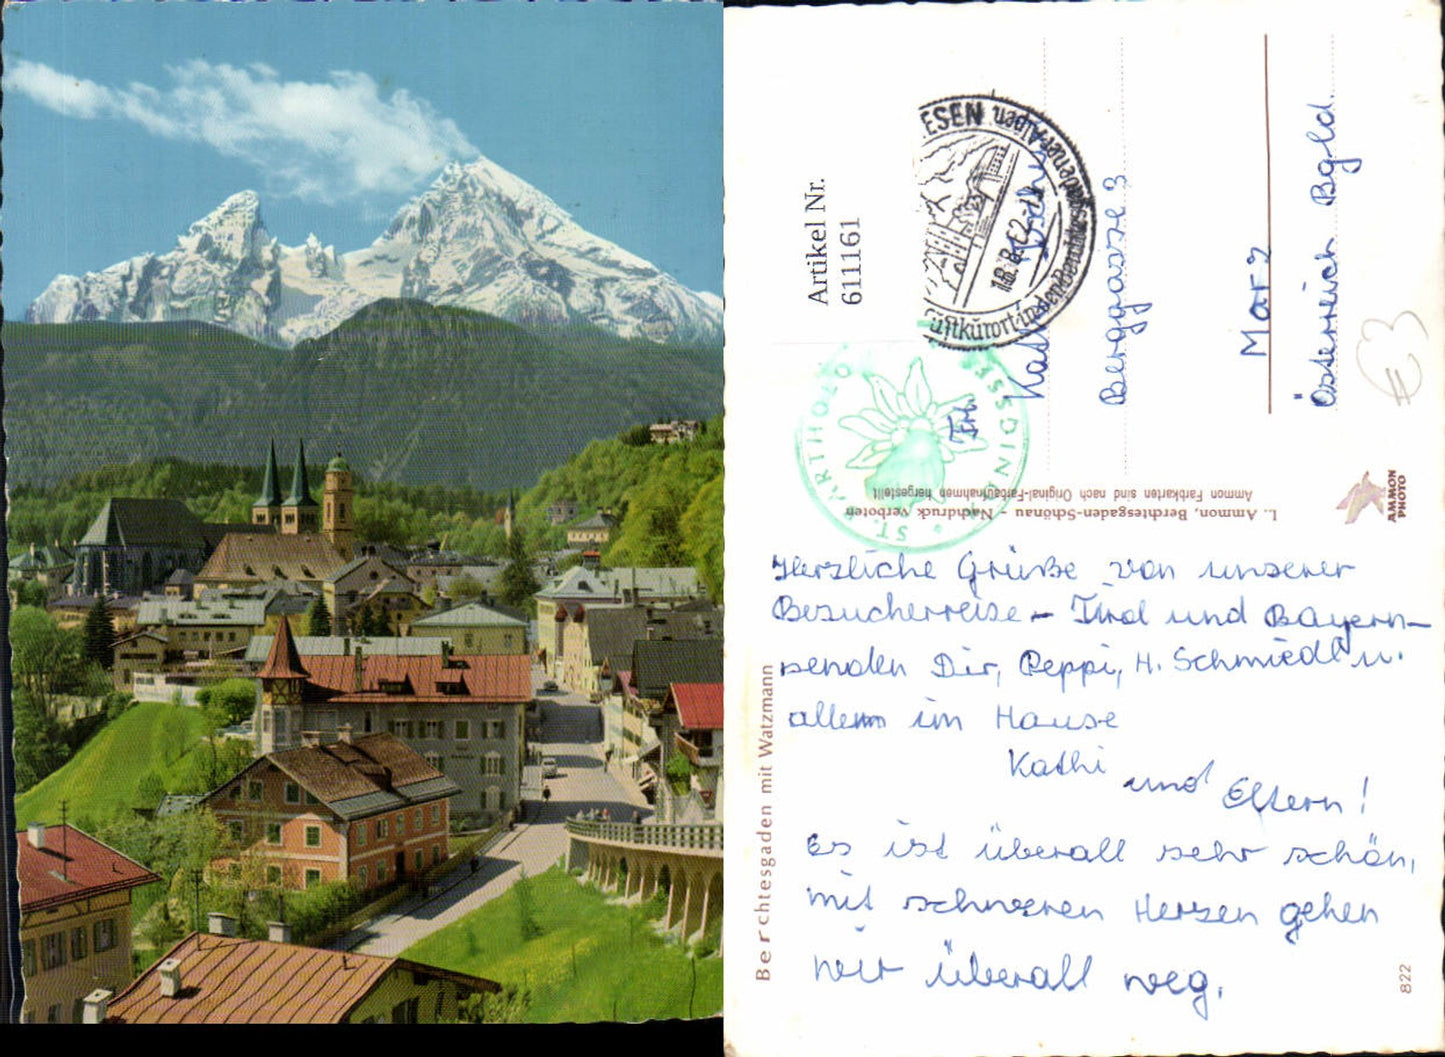 Artikel Nr.
611161
ESEN i.d. Berchtesgadener Alpen
18.8.62-19
Luftkurort in den Berchtesgadener Alpen
ST. BARTHOLO
Frl.
Berggasse 3
Marz
Österreich Bgld.
€3
L. Ammon, Berchtesgaden-Schönau - Nachdruck verboten
Ammon Farbkarten sind nach Original-Farbaufnahmen hergestellt
AMMON
PHOTO
Herzliche Grüße von unserer
Besucherreise - Tirol und Bayern -
senden Dir, Peppi, H. Schmiedl u.
allen im Hause
Kathi und Eltern!
Es ist überall sehr schön,
mit schweren Herzen gehen
wir überall weg.
Berchtesgaden mit Watzmann
822